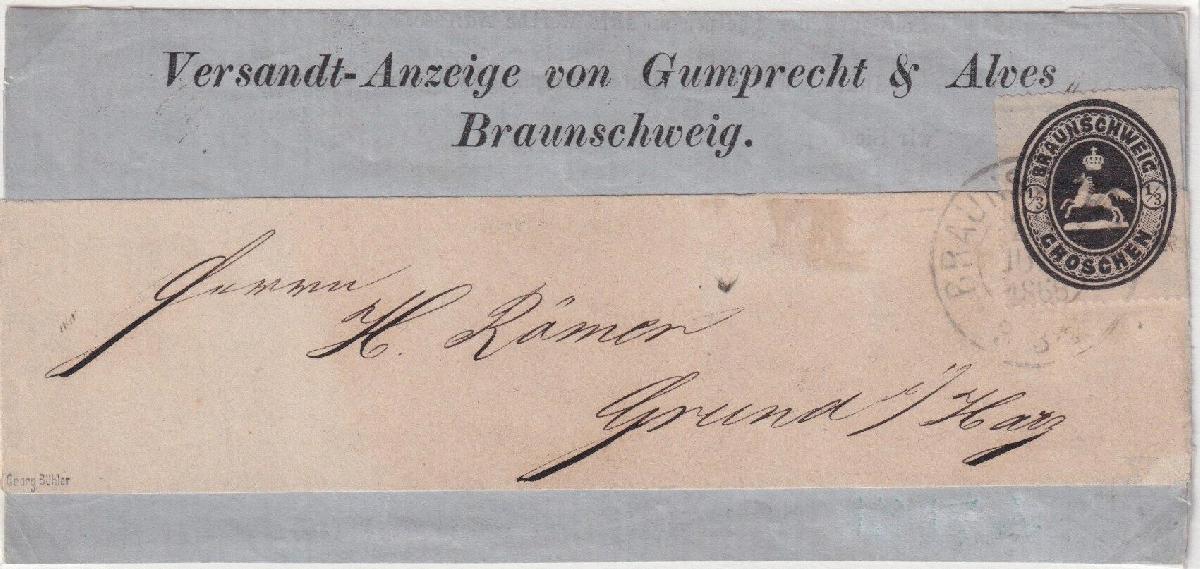 Versandt-Anzeige von Gumprecht & Alves
Braunschweig.
BRAUNSCHWEIG
1/3 1/3
GROSCHEN
BRAUNS
Herrn
H. Römer
Grund i/Harz
Georg Bühler